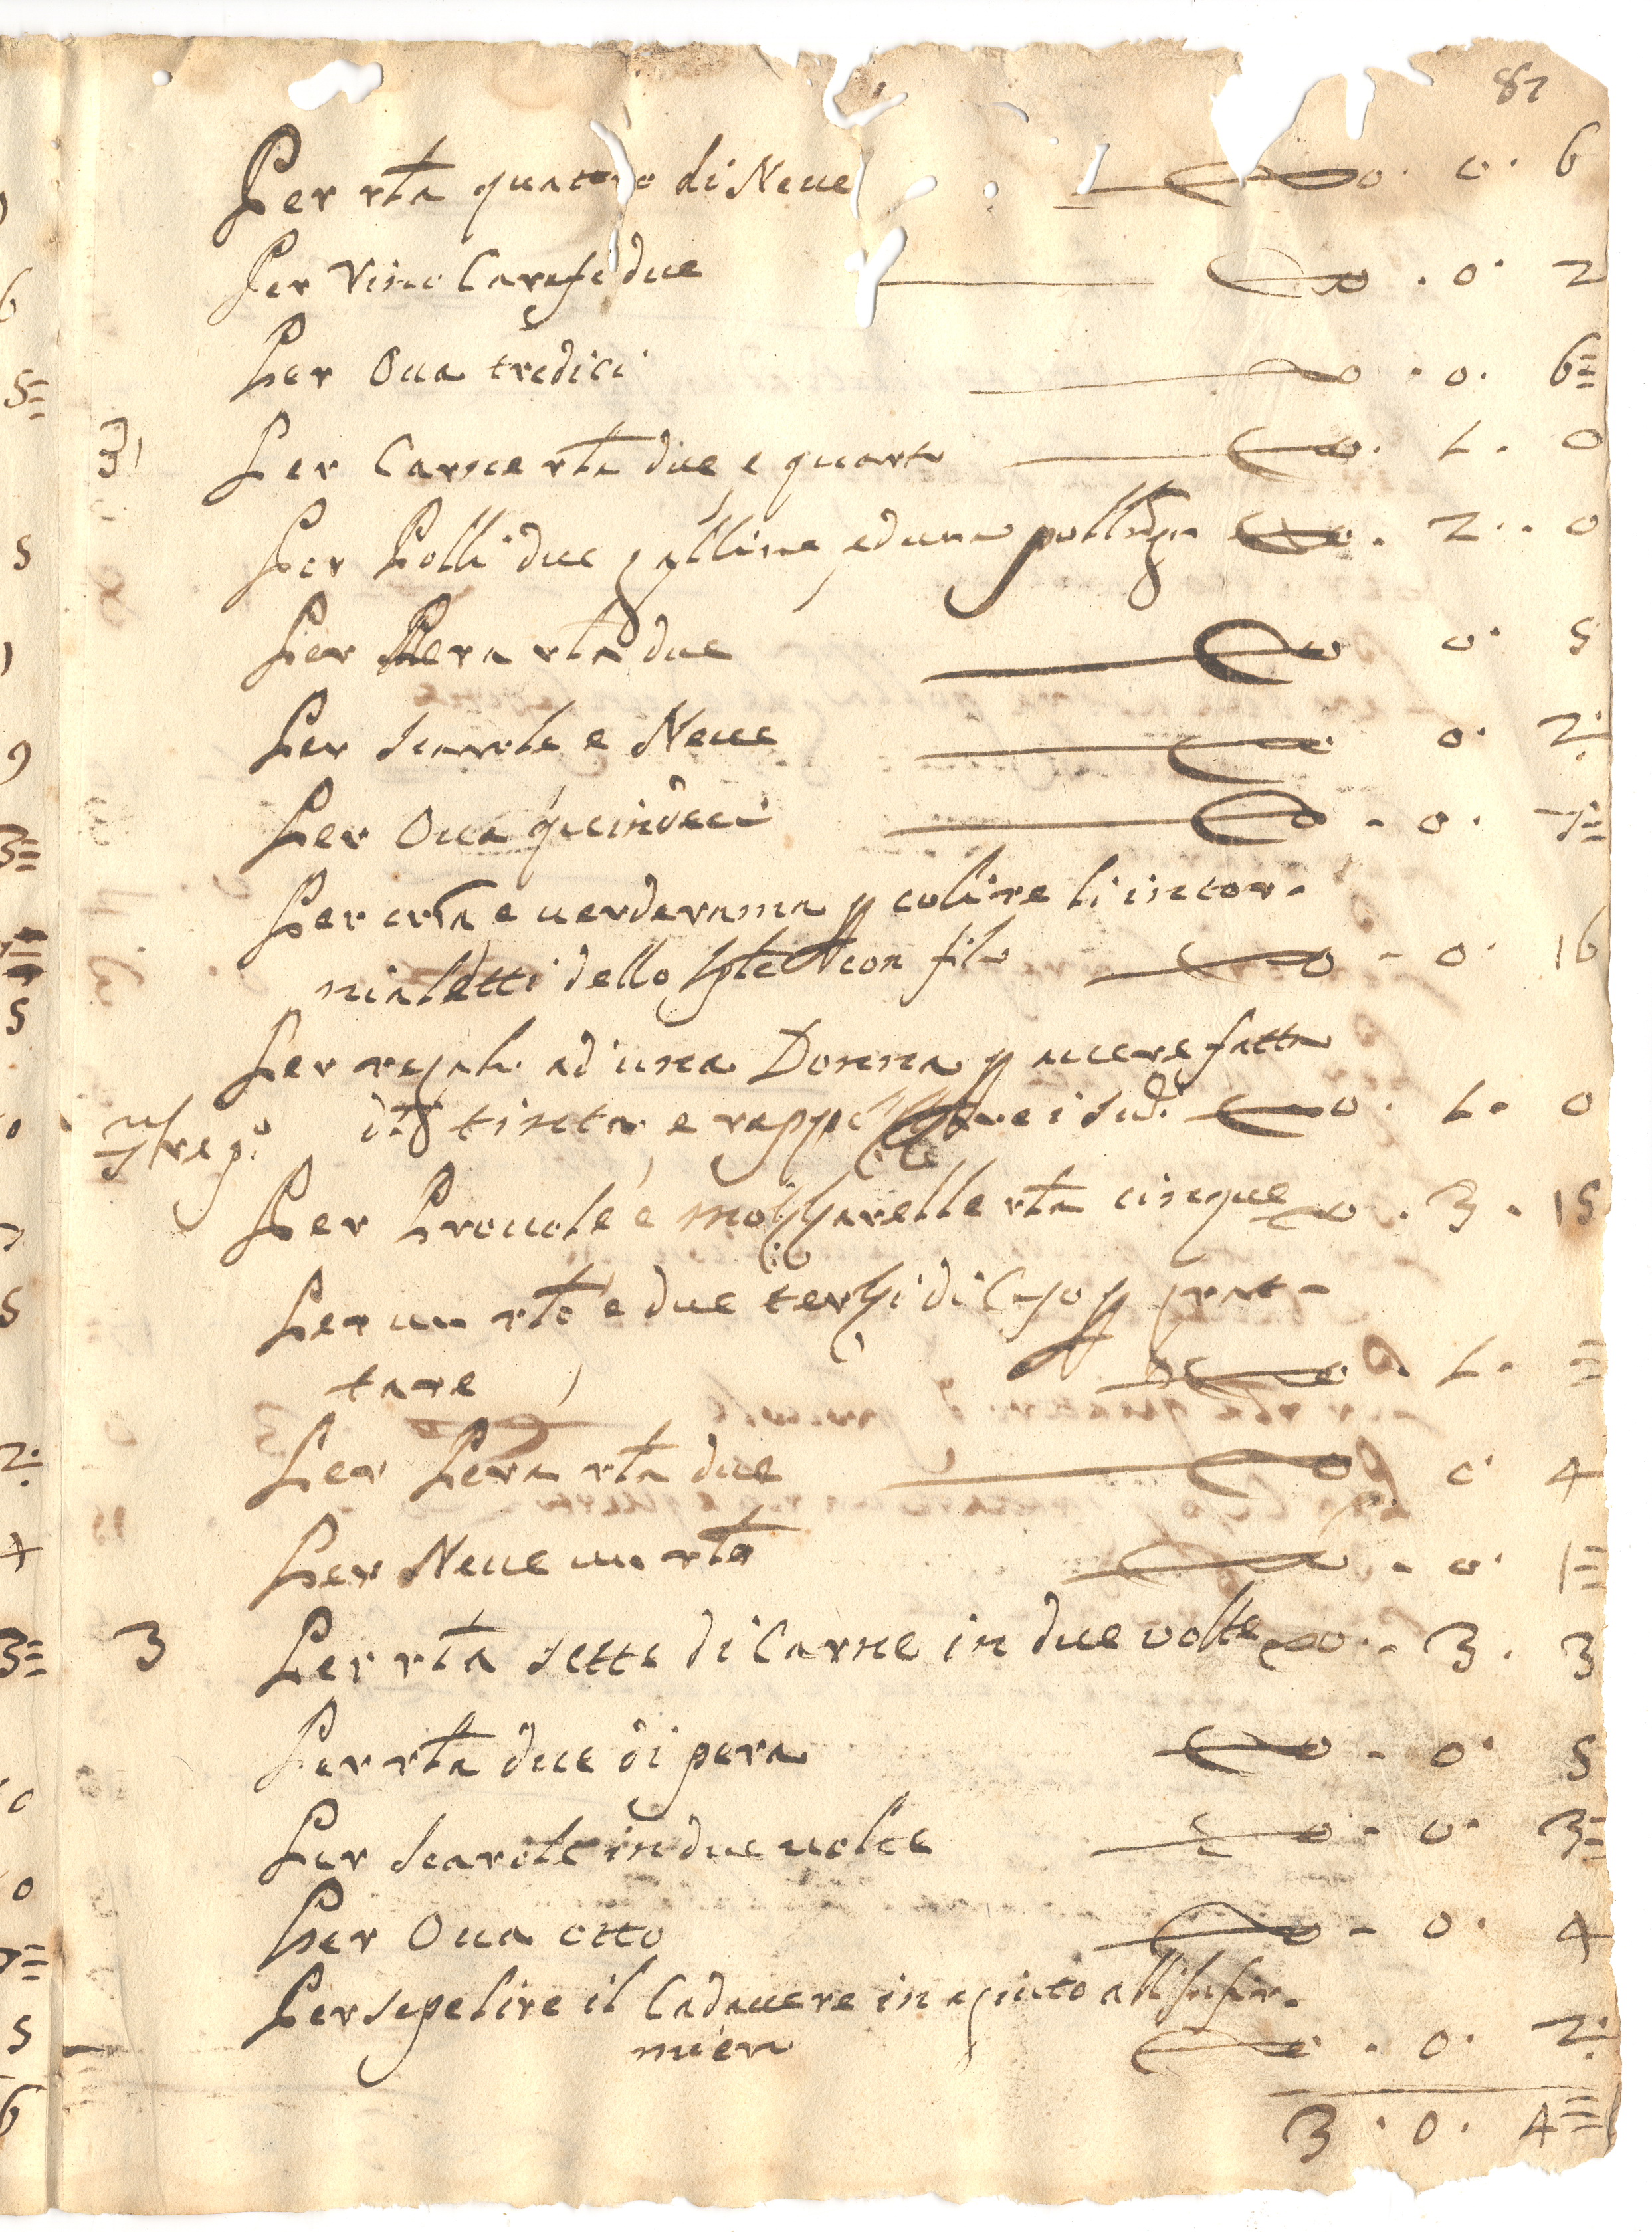 87
Per rta quattro di Neue 0. 0. 6
Per Vino Carafe due 0. 0. 2
Per Oua tredici 0. 0. 6=
3 Per Carne rta due e quarto 0. 1. 0
Per Polli due galline ed uno 0. 2. 0
Per Pera rta due 0 0. 5
Per Scarole e Neue 0 0. 2
Per Oua quindeci 0. 0. 7=
Per e uerderama p colire li intor-
nialetti dello con filo 0. 0. 16
Per regalo ad una Donna p auere fatta
tinta e 0. 1. 0
Per Prouole e mozzarelle rta cinque 0. 3. 15
Per un rto e due terzi di Caso p grat-
tare 0. 1. =
Per Pera rta due 0 0. 4
Per Neue un rto 0. 0. 1=
3 Per rta sette di Carne in due volte 0. 3. 3
Per rta due di pera 0. 0. 5
Per Scarole in due uolte 0. 0. 3=
Per Oua otto 0. 0. 4
Per sepelire il Cadauere in aiuto all'Infir-
miero 0. 0. 2
3. 0. 4=